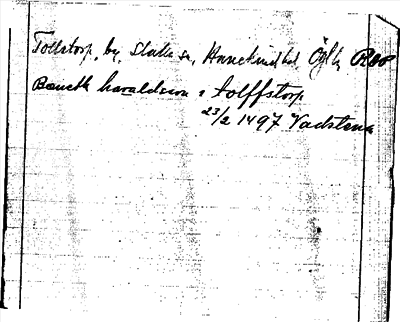 Tollstorp, by, Slaka sn, Hanekinds hd Ögl
Benekt haraldsson i tolffstorp
23/2 1497 Vadstena